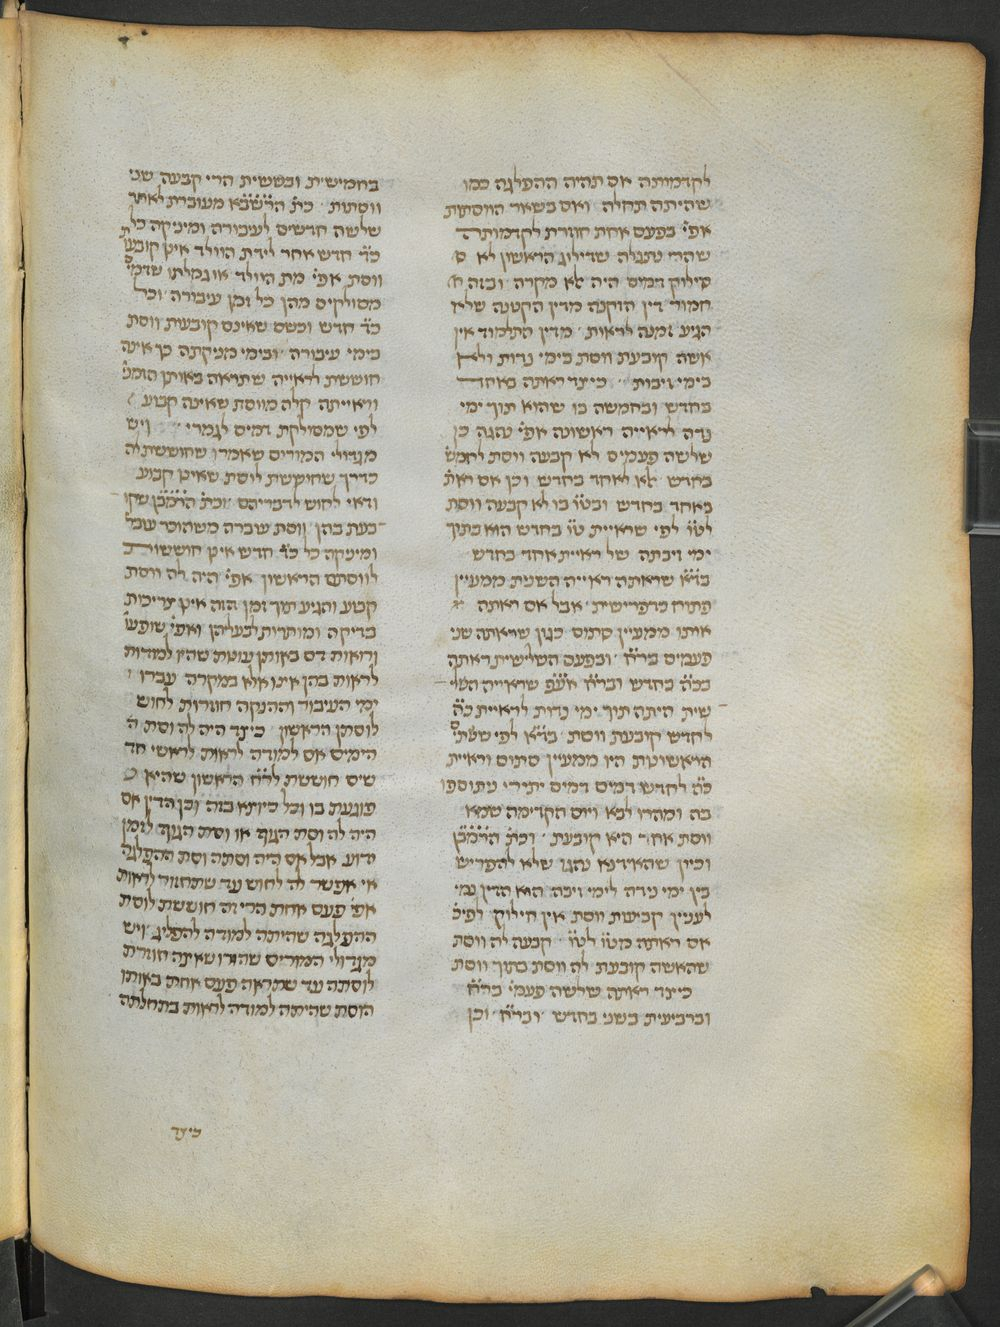 לקדמותה אם תהיה ההפלגה כמו
שהיתה תחלה ואם בשאר הווסתות
אפי' בפעם אחת חוזרת לקדמותה
שהרי נתגלה שדילוג הראשון לא ס'
סילוק דמים היה אלא מקרה ובזה ח'
חמור דין הזקנה מדין הקטנה שלא
הגיע זמנה לראות מדין התלמוד אין
אשה קובעת ווסת בימי נדות ולא
בימי זיבות כיצד ראתה באחד
בחדש ובחמשה בו שהוא תוך ימי
נדה לראייה ראשונה אפי' נהגה כן
שלשה פעמים לא קבעה ווסת לחמש'
בחדש אלא לאחד בחדש וכן אם ראת'
באחד בחדש ובט"ו בו לא קבעה ווסת
לט"ו לפי שראיית ט"ו בחדש הוא בתוך
ימי זיבתה של ראיית אחד בחדש
בד"א שראתה ראייה השנית ממעיין
פתוח כדפרישית אבל אם ראתה
אותו ממעיין סתום כגון שראתה שני
פעמים בר"ח ובפעם השלישית ראתה
בכ"ה בחדש ובר"ח אע"פ שראייה השלי
שית היתה תוך ימי נדות לראיית כ"ה
לחדש קובעת ווסת בד"א לפי ששתי'
הראשונות היו ממעיין סתום וראיית
כ"ה לחדש דמים דמים יתירי ניתוספו
בה ומהרו לבא ויום הקדימה שמא
ווסת אחר היא קובעת וכת' הרמב"ן
וכיון שהאידנא נהגו שלא להפריש
בין ימי נידה לימי זיבה הוא הדין נמי
לענין קביעות ווסת אין חילוק לפיכ'
אם ראתה מט"ו לט"ו קבעה לה ווסת
שהאשה קובעת לה ווסת בתוך ווסת
כיצד ראתה שלשה פעמי' בר"ח
וברביעית בשני בחדש ובר"ח וכן
בחמישית ובששית הרי קבעה שני
ווסתות כת' הרשב"א מעוברת לאחר
שלשה חדשים לעיבורה ומיניקה כל
כ"ד חדש אחר לידת הוולד אינן קובעות
ווסת אפי' מת הוולד או גמלתו שדמי'
מסולקים מהן כל זמן עיבורה וכל
כ"ד חדש וכשם שאינם קובעות ווסת
בימי עיבורה ובימי מניקתה כך אינה
חוששת לראייה שתראה באותן הזמני'
וראייתה קלה מווסת שאינה קבוע
לפי שמסולקת דמים לגמרי ויש
מגדולי המורים שאמרו שחוששת לה
כדרך שחוששת לוסת שאינן קבוע
וראוי לחוש לדבריהם וכת' הרמב"ן שקו
בעת בהן ווסת עוברה משהוכר עובל
ומיניקה כל כ"ד חדש אינן חוששות
לווסתם הראשון אפי' היה לה ווסת
קבוע והגיע תוך זמן הזה אינן צריכות
בדיקה ומותרות לבעליהן ואפי' שופעו'
ורואות דם באותן עונות שהיו למודות
לראות בהן אינו אלא במקרה עברו
ימי העיבור וההנקה חוזרות לחוש
לוסתן הראשון כיצד היה לה וסת ה'
הימים אם למודה לראות לראשי חד
שים חוששת לר"ח הראשון שהיא
פוגעת בו וכל כיוצא בזה וכן הדין אם
היה לה וסת הגוף או וסת הגוף לזמן
ידוע אבל אם היה וסתה וסת ההפלגה
אי אפשר לה לחוש עד שתחזור לראות
אפי' פעם אחת הרי זה חוששת לוסת
ההפלגה שהיתה למודה להפליג ויש
מגדולי המורים שהורו שאינה חוזרת
לוסתה עד שתראה פעם אחת באותו
הוסת שהיתה למודה לראות בתחלתה
כיצד